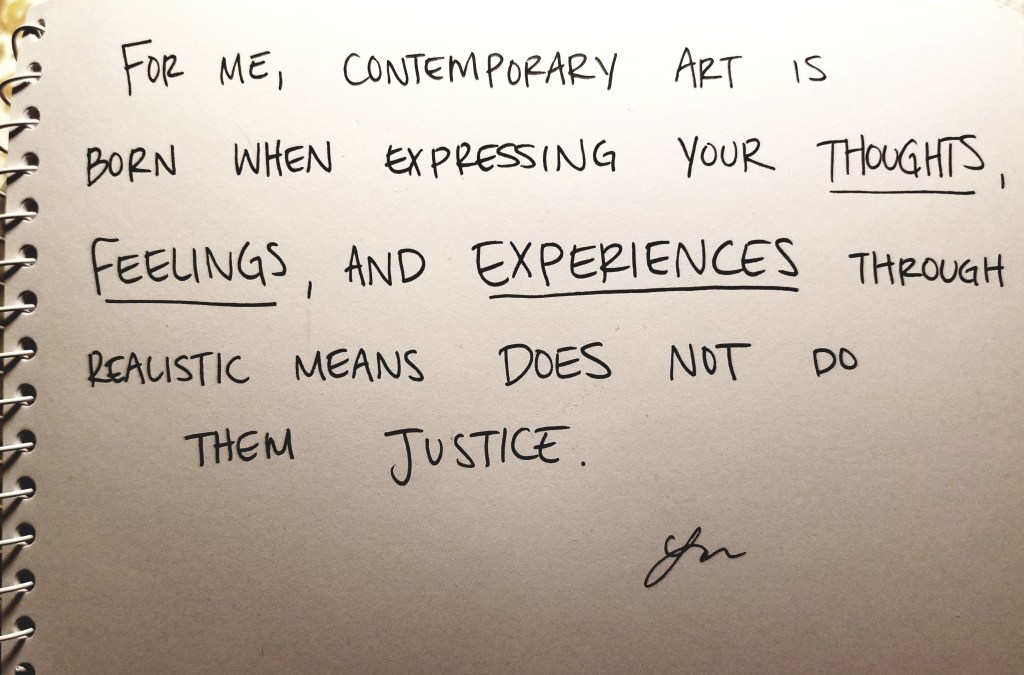 FOR ME, CONTEMPORARY ART IS
BORN WHEN EXPRESSING YOUR THOUGHTS,
FEELINGS, AND EXPERIENCES THROUGH
REALISTIC MEANS DOES NOT DO
THEM JUSTICE.